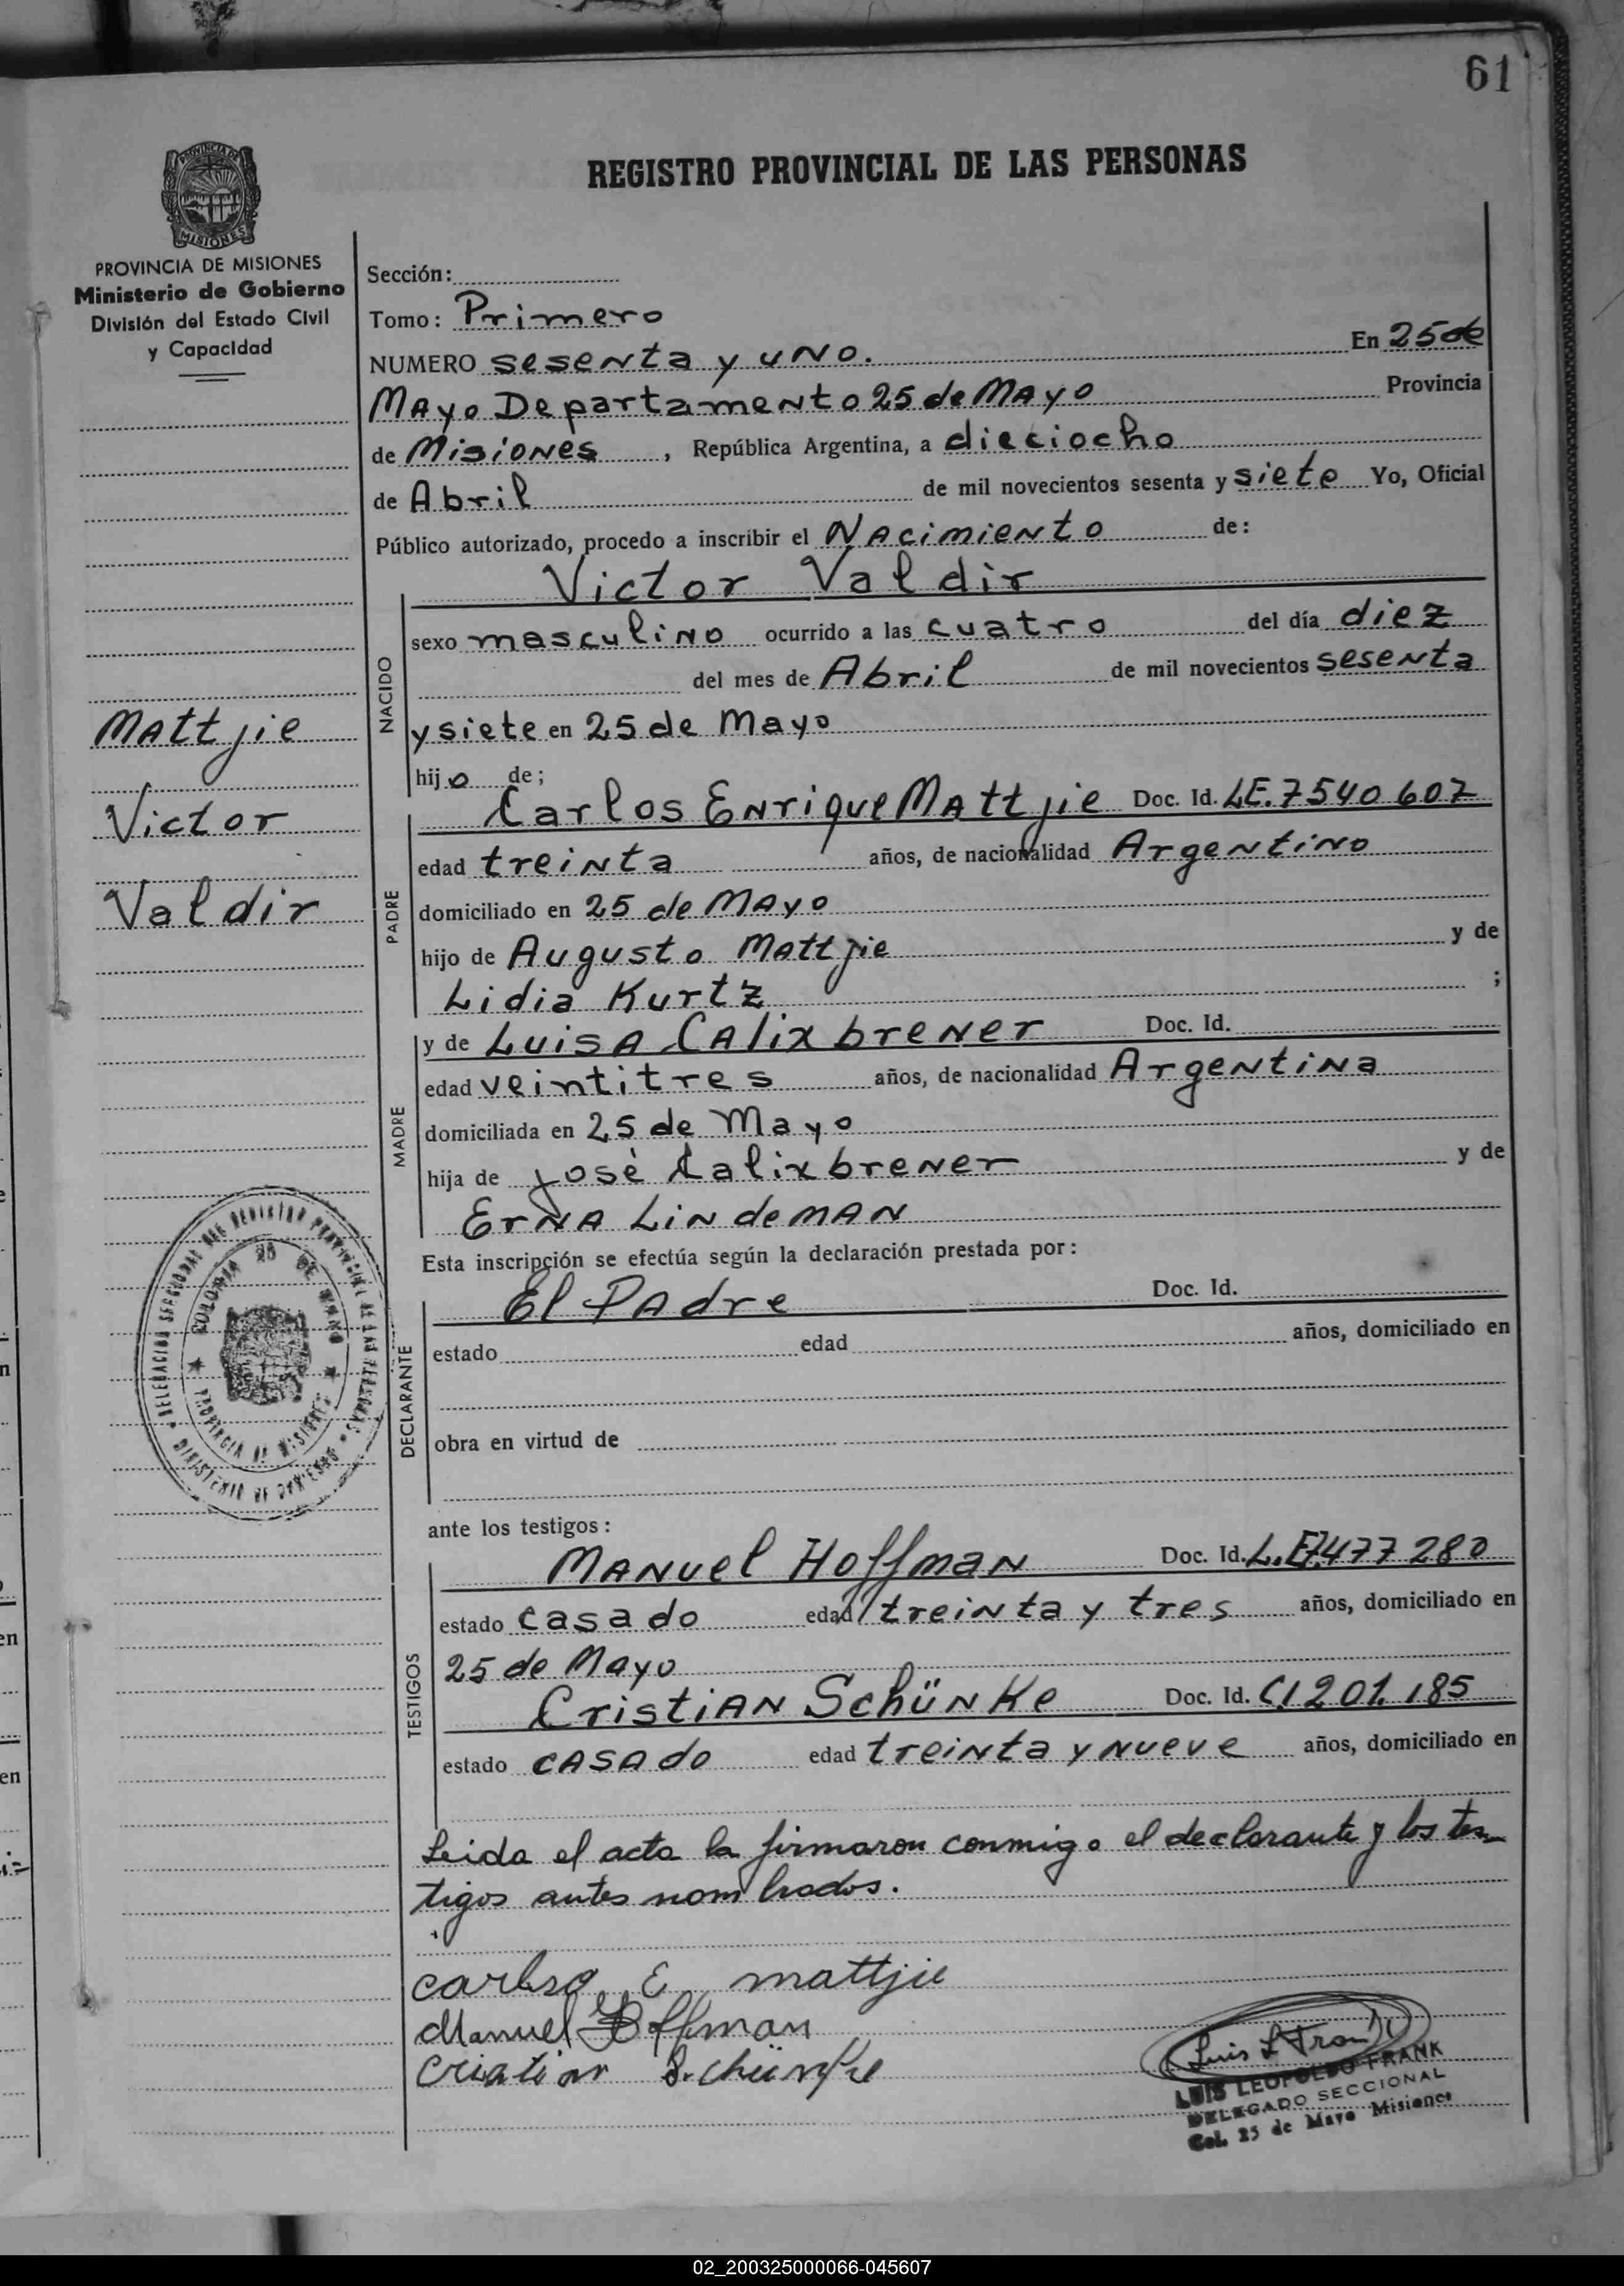 61
REGISTRO PROVINCIAL DE LAS PERSONAS
PROVINCIA DE
MISIONES
PROVINCIA DE MISIONES
Ministerio de Gobierno
División del Estado Civil
y Capacidad
Mattjie
Victor
Valdir
Sección:
Tomo: Primero
NUMERO sesenta y uno. En 25 de
Mayo Departamento 25 de Mayo Provincia
de Misiones , República Argentina, a dieciocho
de Abril de mil novecientos sesenta y siete Yo, Oficial
Público autorizado, procedo a inscribir el Nacimiento de:
Victor Valdir
NACIDO
sexo masculino ocurrido a las cuatro del día diez
del mes de Abril de mil novecientos sesenta
y siete en 25 de Mayo
hijo de;
Carlos Enrique Mattjie Doc. Id. LE. 7540607
PADRE
edad treinta años, de nacionalidad Argentino
domiciliado en 25 de Mayo
hijo de Augusto Mattjie y de
Lidia Kurtz ;
y de Luisa Calixbrener Doc. Id.
MADRE
edad veintitres años, de nacionalidad Argentina
domiciliada en 25 de Mayo
hija de José Calixbrener y de
Erna Lindeman
Esta inscripción se efectúa según la declaración prestada por:
El Padre Doc. Id.
DECLARANTE
estado edad años, domiciliado en
obra en virtud de
ante los testigos:
Manuel Hoffman Doc. Id. L.E. 7.477 280
TESTIGOS
estado casado edad treinta y tres años, domiciliado en
25 de Mayo
Cristian Schünke Doc. Id. C.I 201.185
estado casado edad treinta y nueve años, domiciliado en
Leida el acta la firmaron conmigo el declarante y los tes-
tigos antes nombrados.
carlso E mattjie
Manuel Hoffman
Cristian Schünke
Luis L Frank
LUIS LEOPOLDO FRANK
DELEGADO SECCIONAL
Col. 25 de Mayo Misiones
DELEGACION SECCIONAL DEL REGISTRO PROVINCIAL DE LAS PERSONAS
MINISTERIO DE GOBIERNO
COLONIA 25 DE MAYO
PROVINCIA DE MISIONES
02_200325000066-045607